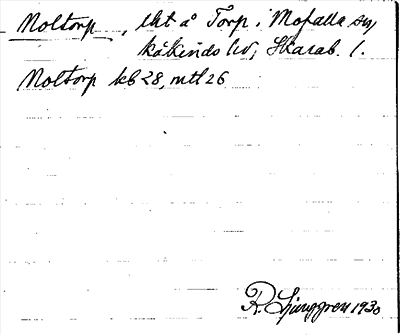 Noltorp, lht å Torp i Mofalla sn,
Kåkinds hd, Skarab. l.
Noltorp kb 28, mtl 26
R. Ljunggren 1930